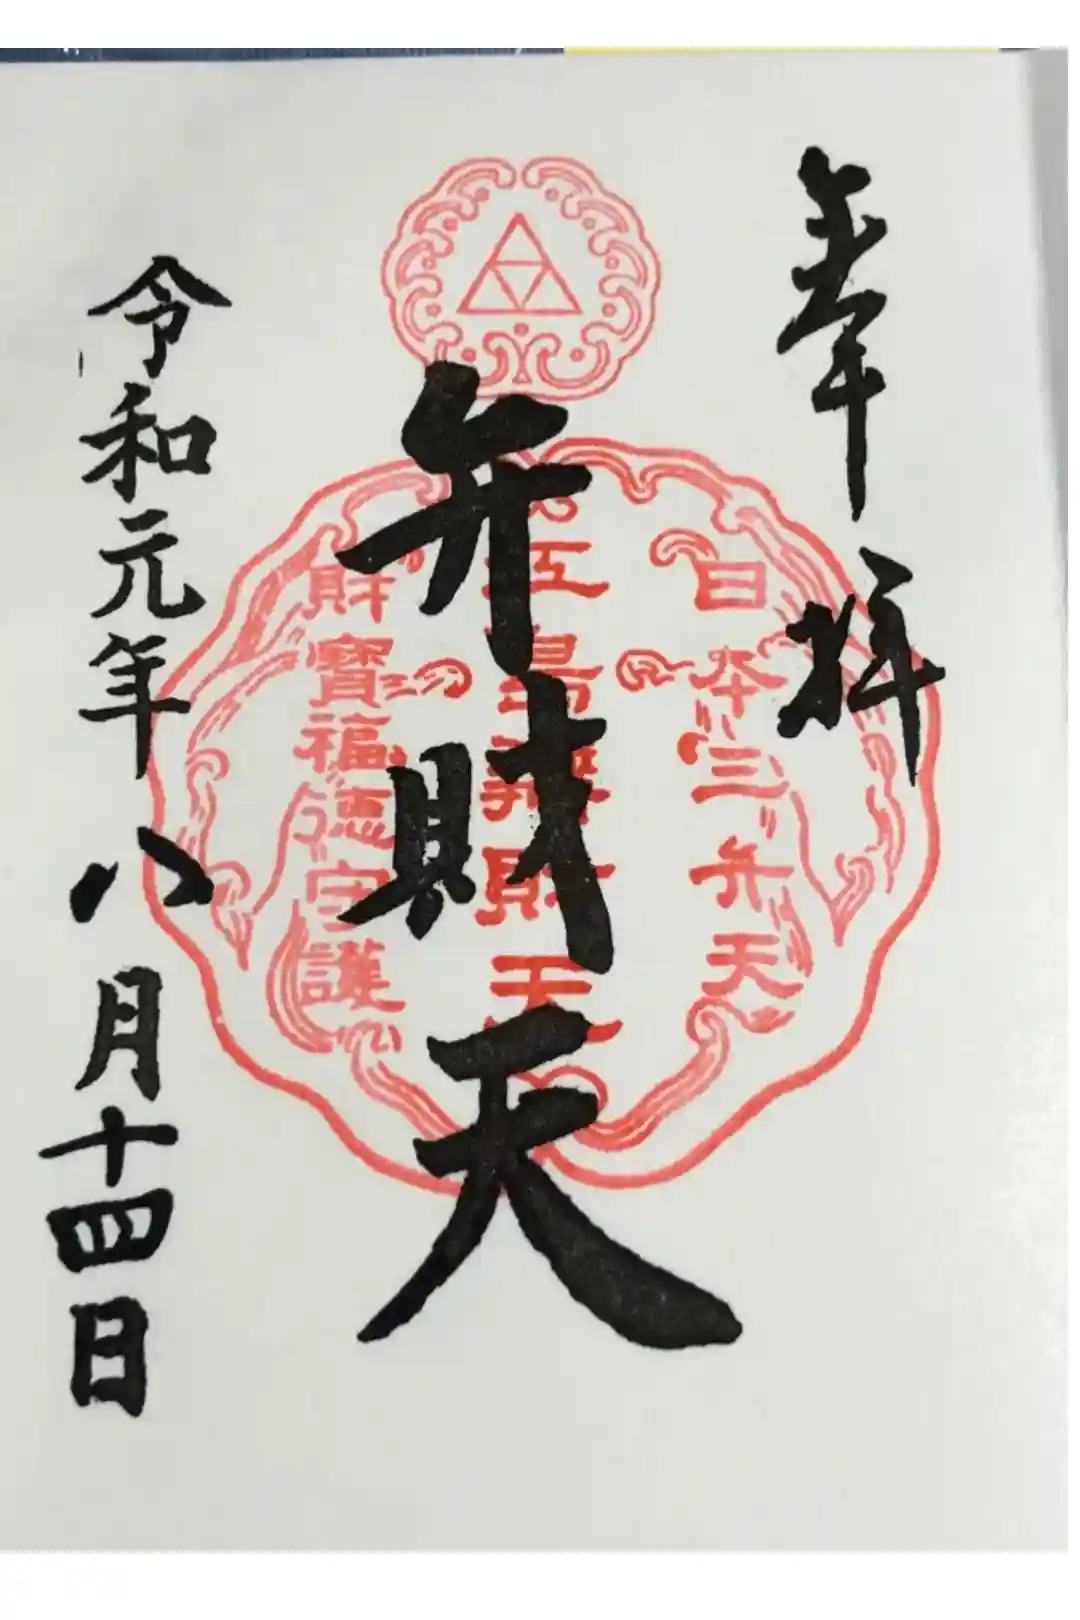 奉拝
日本三弁天
江島辨財天
財寶福徳守護
弁財天
令和元年八月十四日